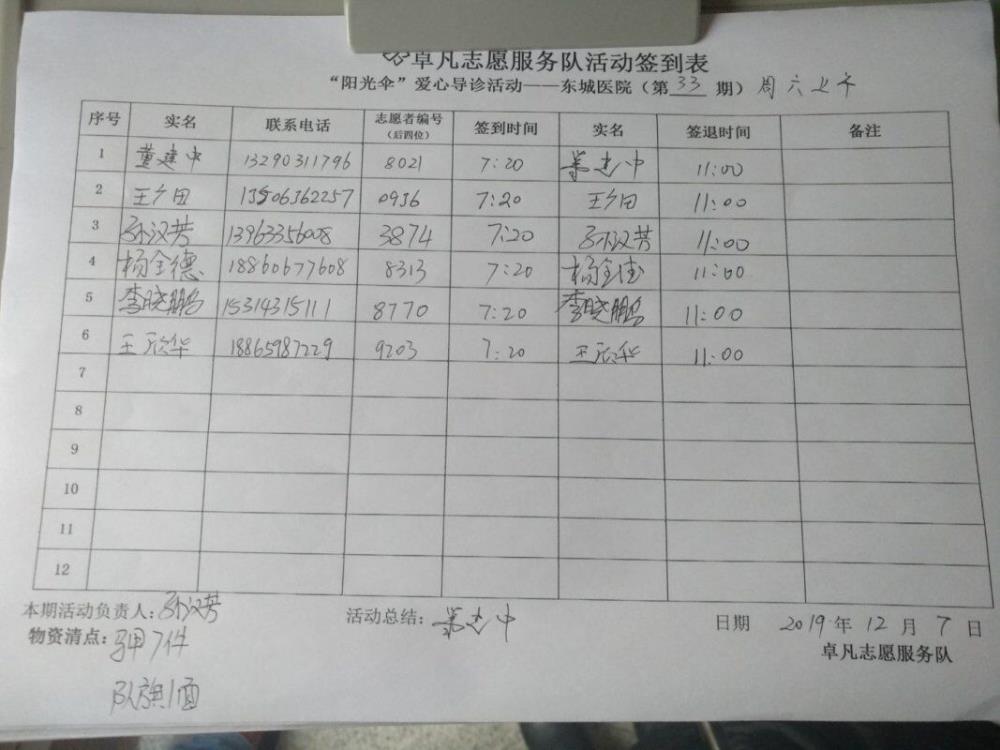 卓凡志愿服务队活动签到表
“阳光伞”爱心导诊活动——东城医院（第33期）周六上午
序号 实名 联系电话 志愿者编号（后四位） 签到时间 实名 签退时间 备注
1 董建中 13290311796 8021 7:20 董建中 11:00
2 王乡田 13506362257 0936 7:20 王乡田 11:00
3 孙汉芳 13963356008 3874 7:20 孙汉芳 11:00
4 杨全德 18860677608 8313 7:20 杨全德 11:00
5 李晓鹏 15314315111 8770 7:20 李晓鹏 11:00
6 王欣华 18865987229 9203 7:20 王欣华 11:00
7
8
9
10
11
12
本期活动负责人：孙汉芳 活动总结：董建中 日期 2019年12月7日
物资清点：马甲7件 卓凡志愿服务队
队旗1面